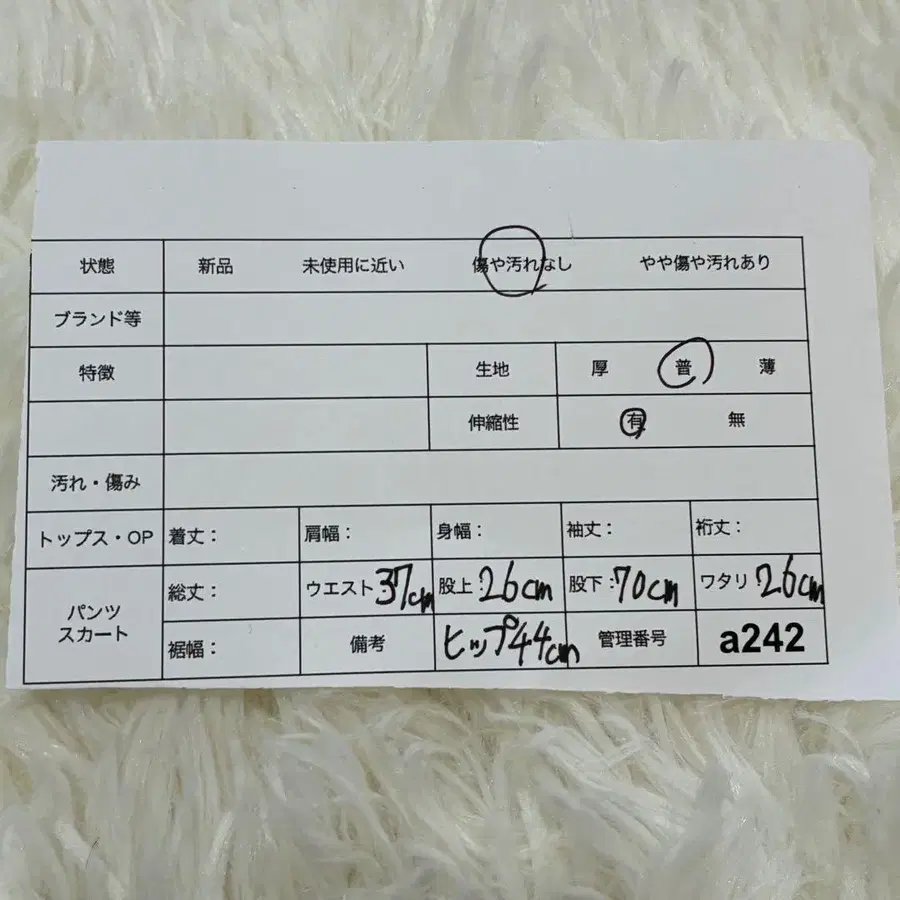 状態 新品 未使用に近い 傷や汚れなし やや傷や汚れあり
ブランド等
特徴 生地 厚 普 薄
伸縮性 有 無
汚れ・傷み
トップス・OP 着丈： 肩幅： 身幅： 袖丈： 裄丈：
パンツ
スカート
総丈： ウエスト 37cm 股上：26cm 股下：70cm ワタリ 26cm
裾幅： 備考 ヒップ44cm 管理番号 a242